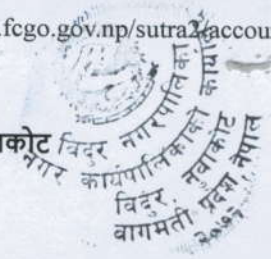 .fcgo.gov.np/sutra2/accou
कोट
विदुर नगरपालिका
नगर कार्यपालिकाको कार्या
विदुर, नुवाकोट
बागमती प्रदेश नेपाल
२०७१